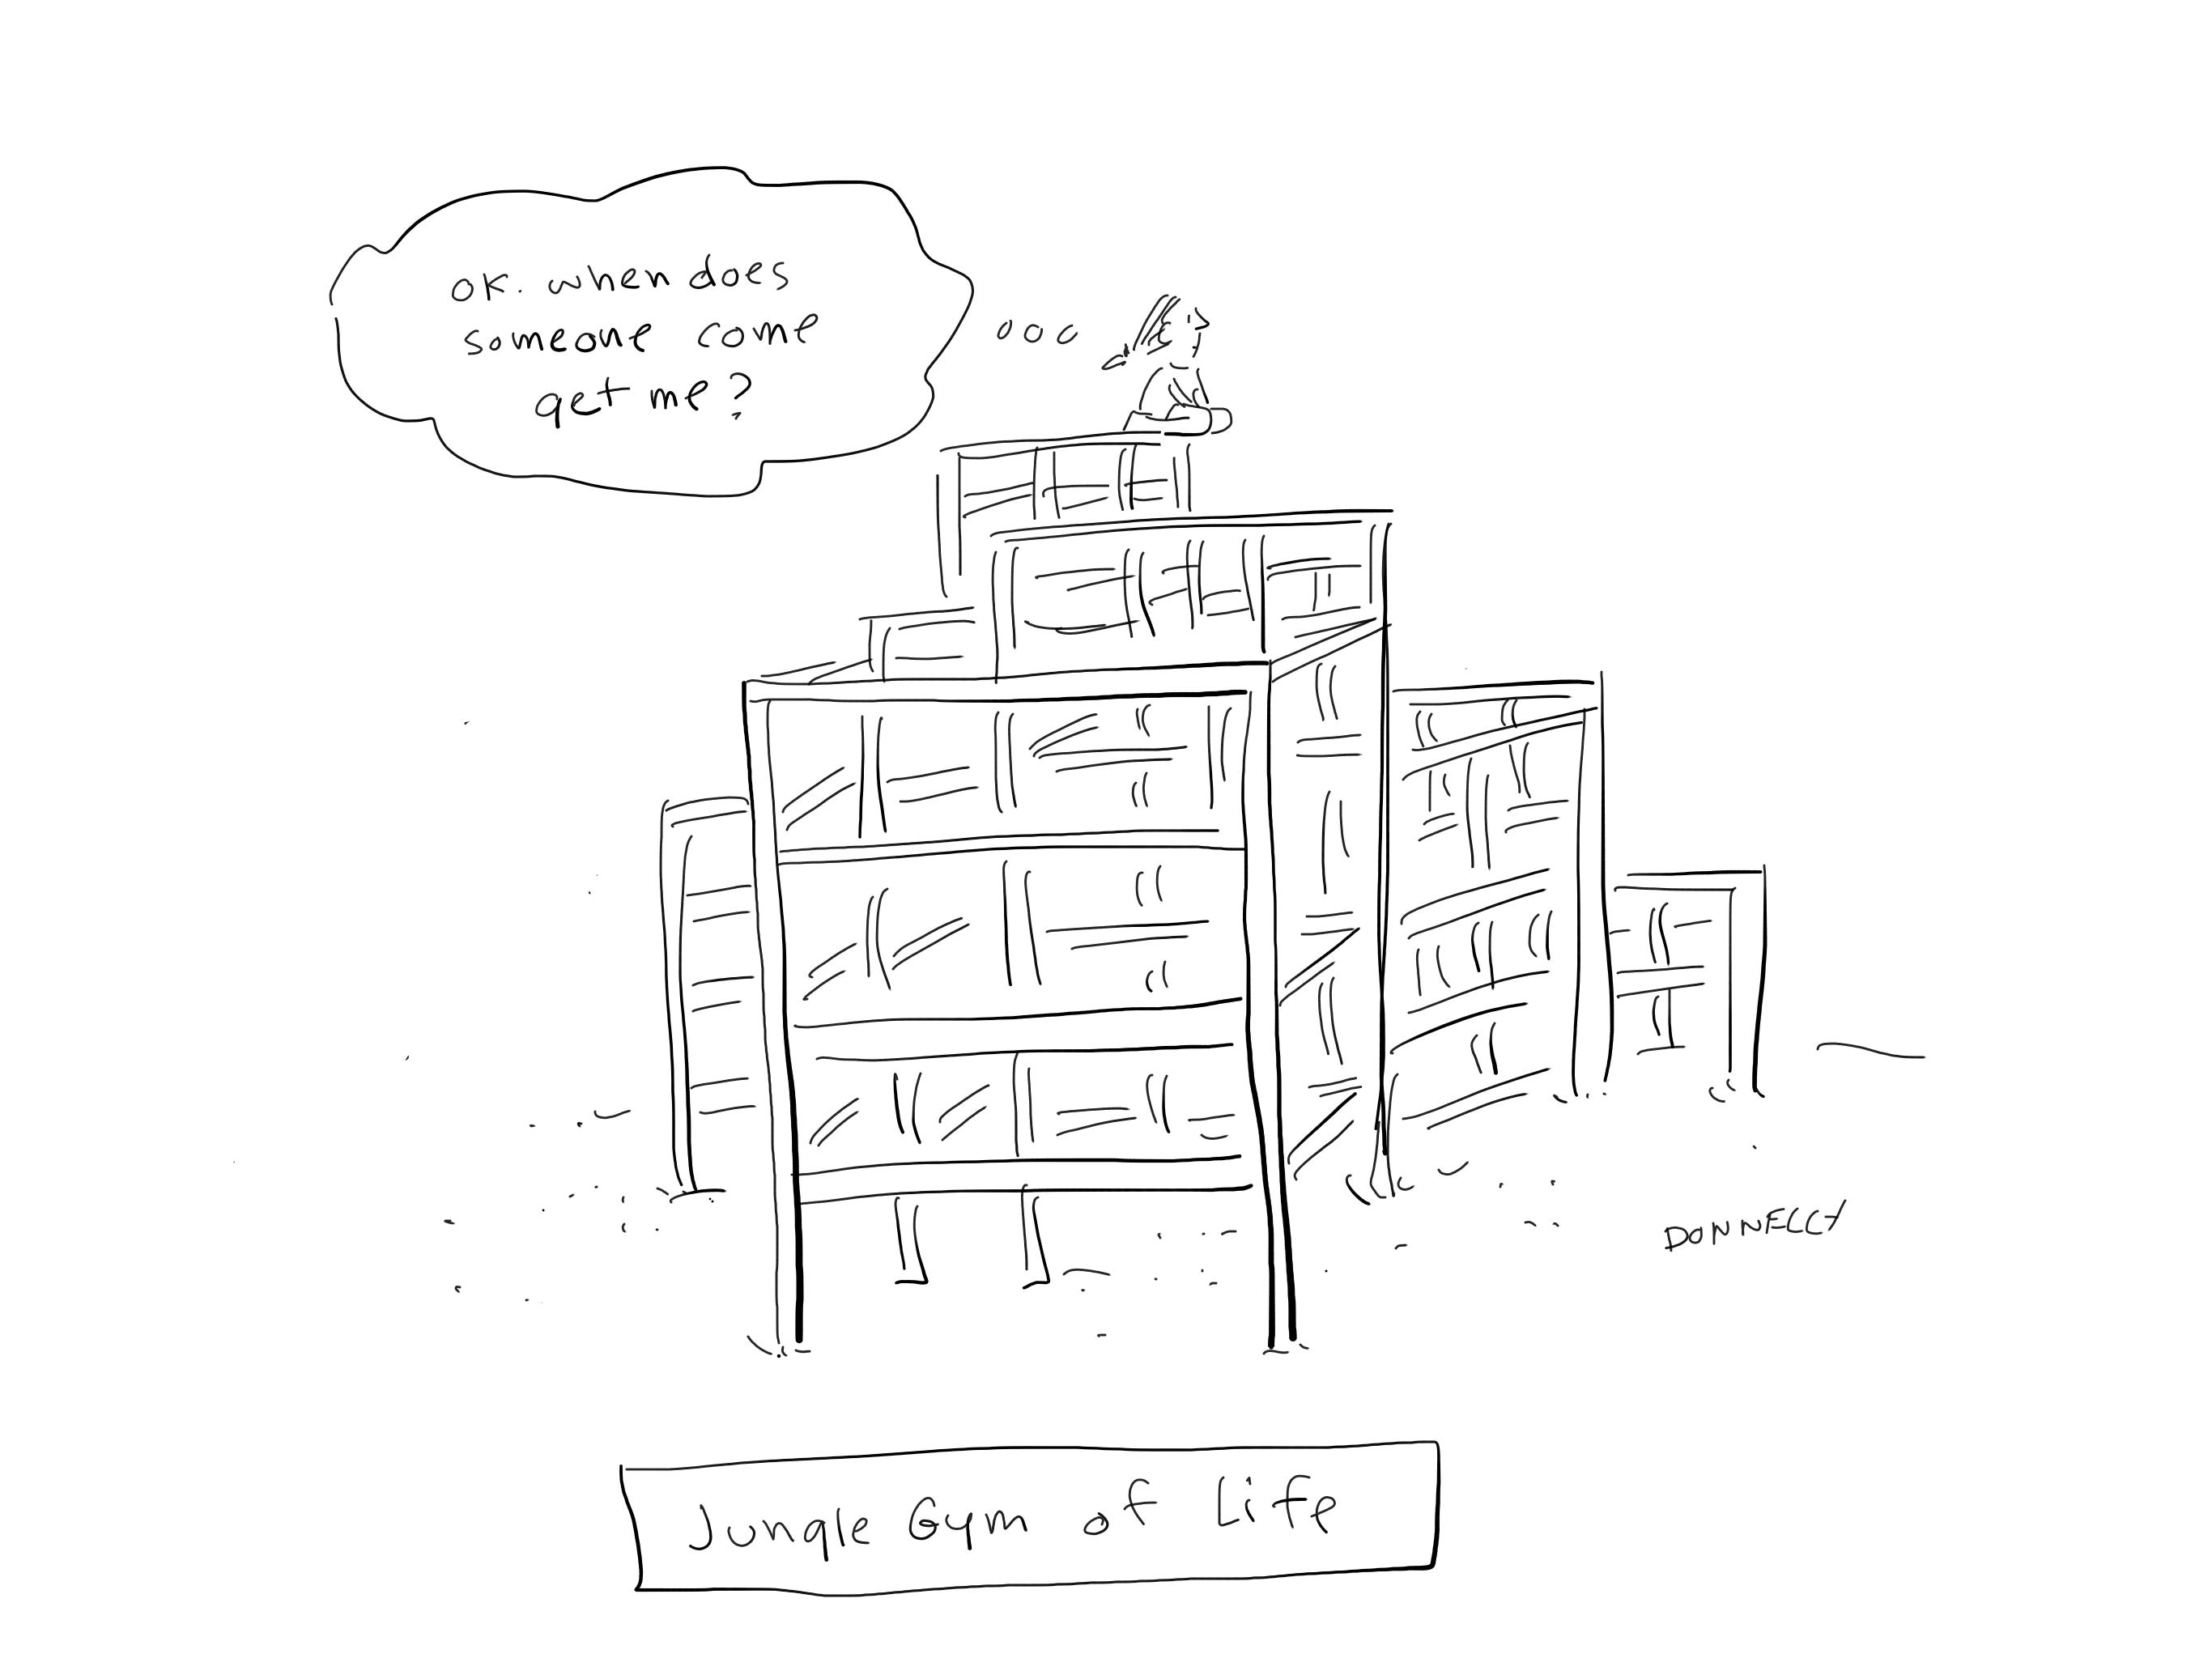 ok. when does
someone come
get me?
DONNELLY
Jungle Gym of Life